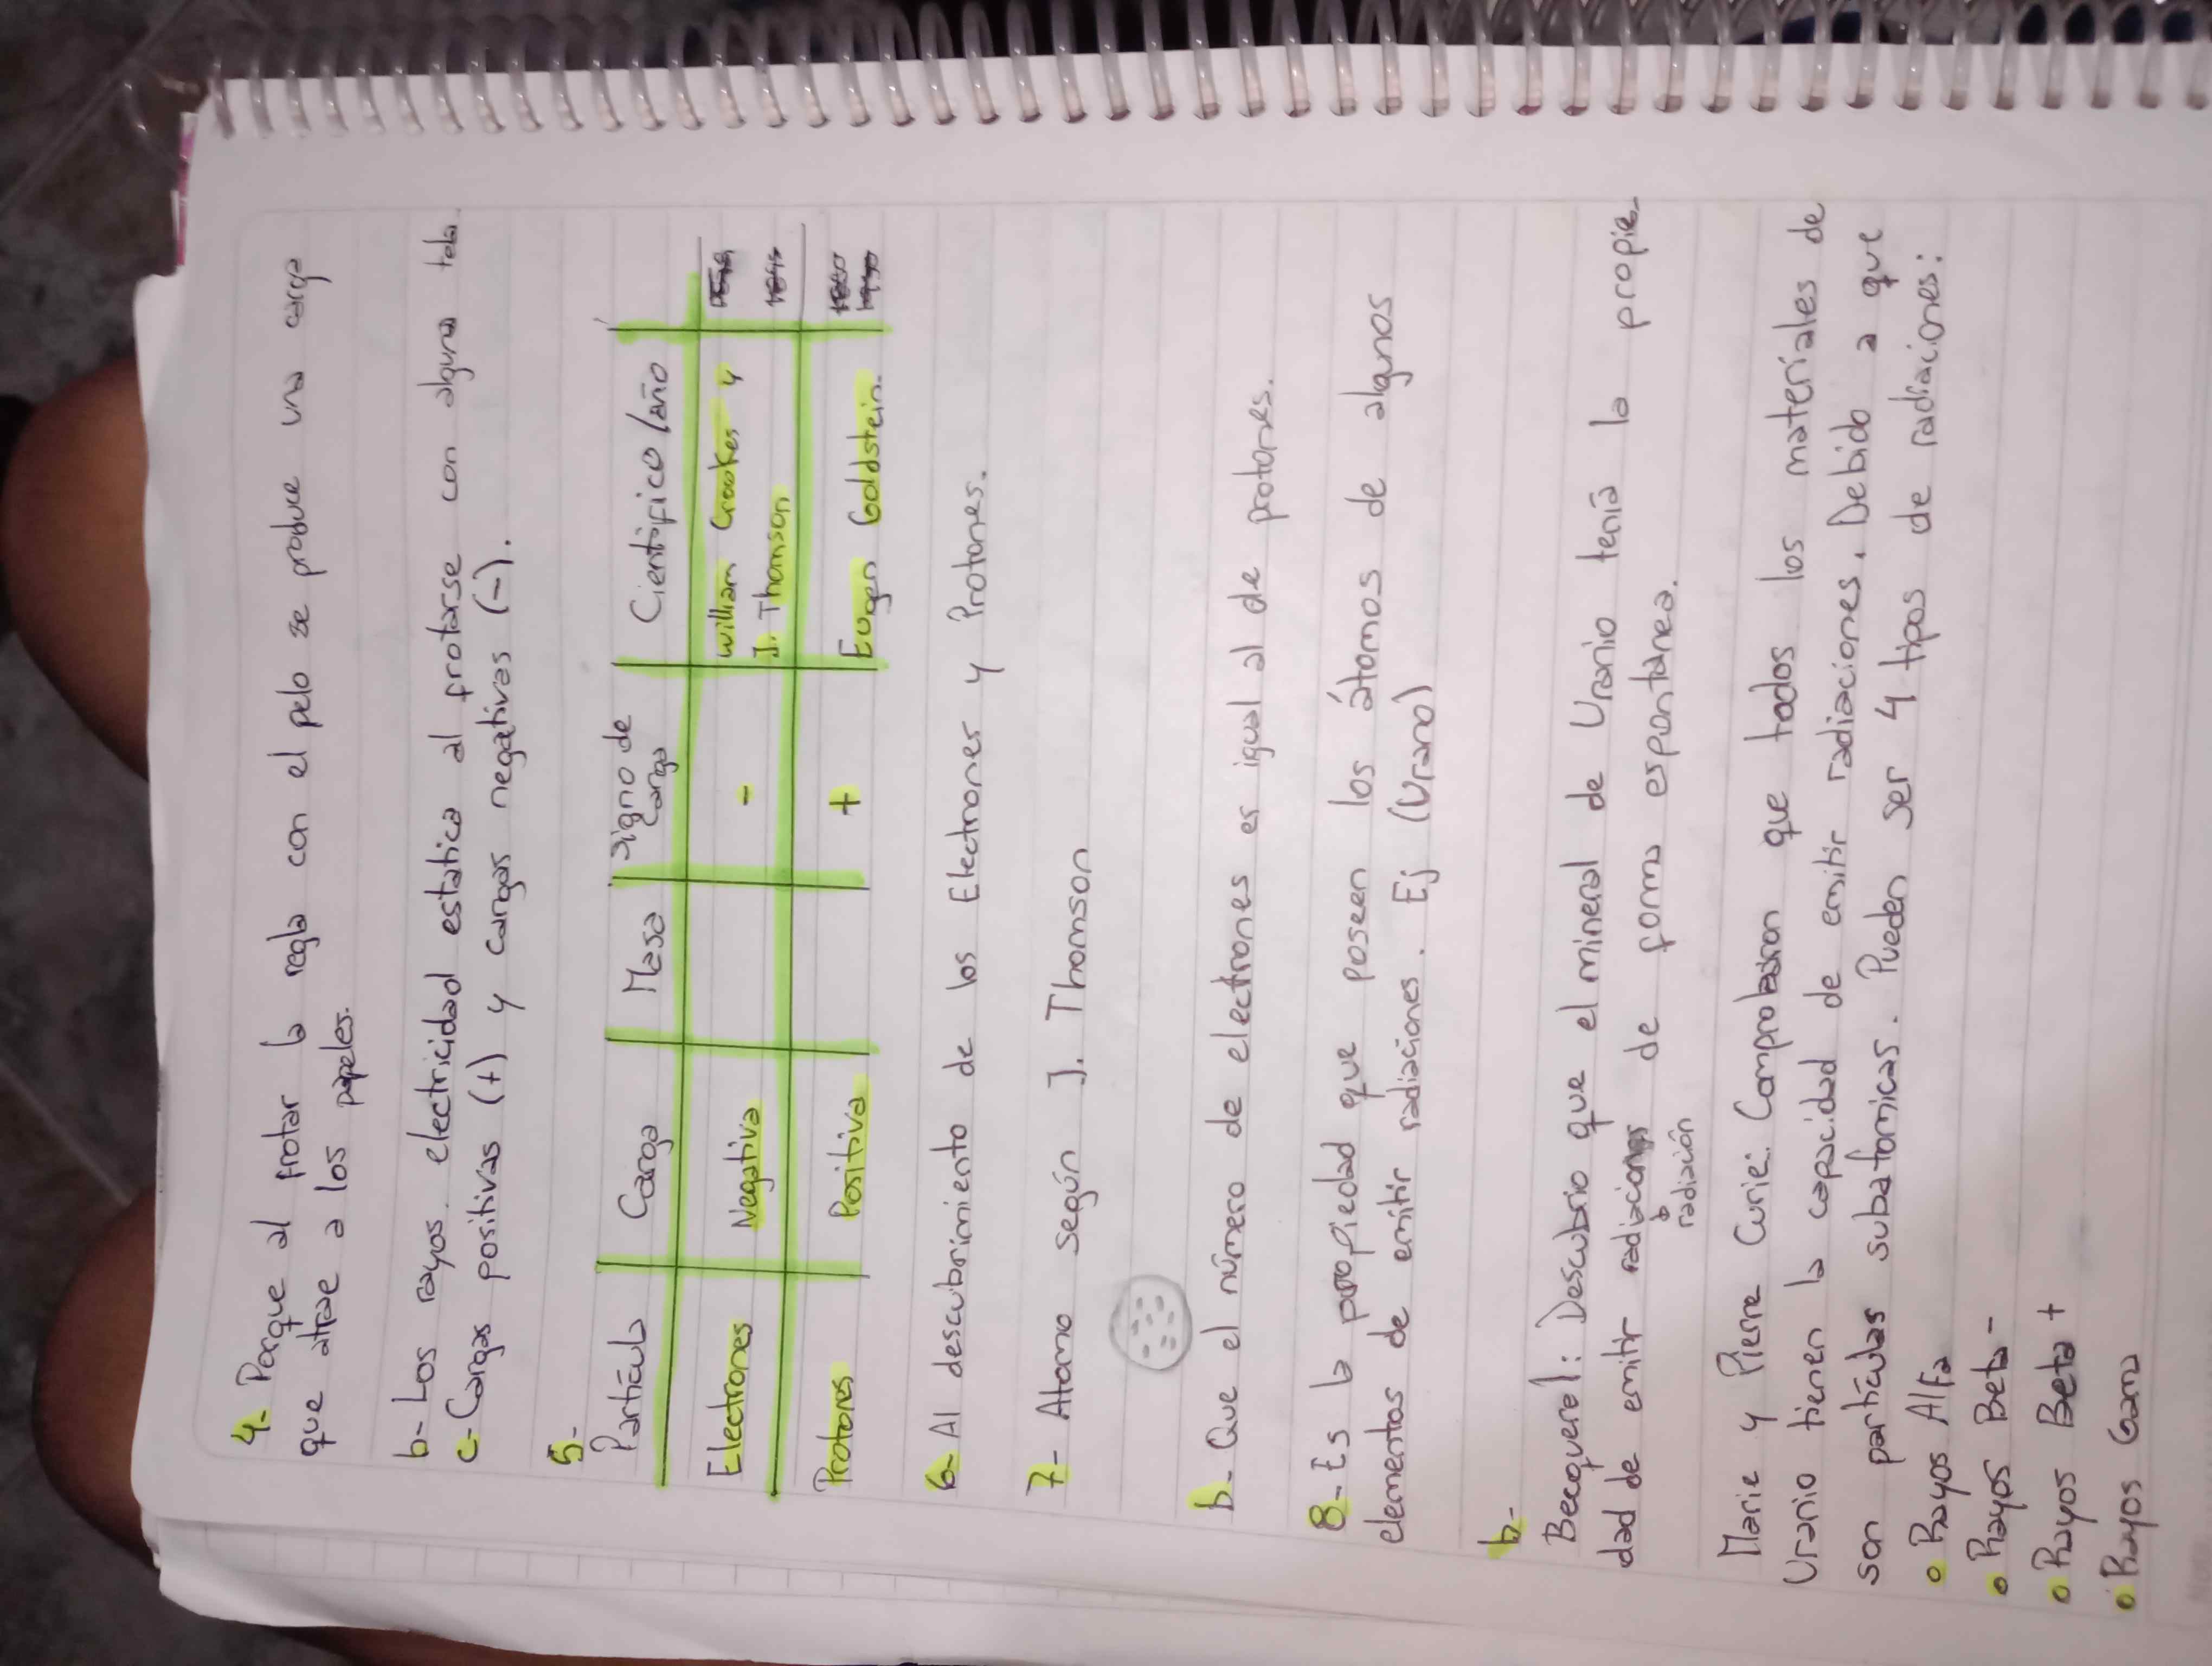 4- Porque al frotar la regla con el pelo se produce una carga
que atrae a los papeles.
b- Los rayos. electricidad estatica al frotarse con alguna tela.
c- Cargas positivas (+) y cargas negativas (-).
5-
Partícula Carga Masa Signo de carga Científico/año
Electrones Negativa - William Crookes y
J. Thomson
Protones Positiva + Eugen Goldstein.
6- Al descubrimiento de los Electrones y Protones.
7- Atomo según J. Thomson
b- Que el número de electrones es igual al de protones.
8- Es la propiedad que poseen los átomos de algunos
elementos de emitir radiaciones. Ej (Urano)
b-
Becquerel: Descubrio que el mineral de Uranio tenía la propie-
dad de emitir radiaciones de forma espontánea.
radiación
Marie y Pierre Curie: Comprobaron que todos los materiales de
Uranio tienen la capacidad de emitir radiaciones. Debido a que
son partículas subatomicas. Pueden ser 4 tipos de radiaciones:
o Rayos Alfa
o Rayos Beta -
o Rayos Beta +
o Rayos Gama